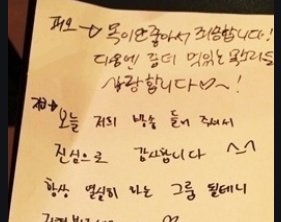 피오→ 목이 안 좋아서 죄송합니다!
다음엔 좀 더 멋있는 목소리로
사랑합니다♡~!
오늘 저희 방송 들어 주셔서
진심으로 감사합니다 ^-^
항상 열심히 하는 그룹 될테니